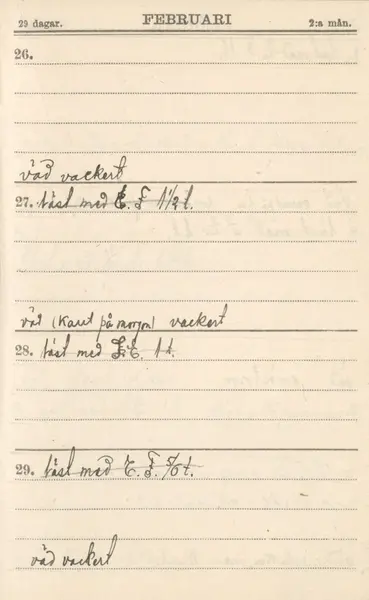 29 dagar. FEBRUARI 2:a mån.
26.
väd vackert
27. läst med E. F 1 1/2 t.
väd (Karet på morgon) vackert
28. läst med F. E. 1 t.
29. läst med E. F. 5/6 t.
väd vackert